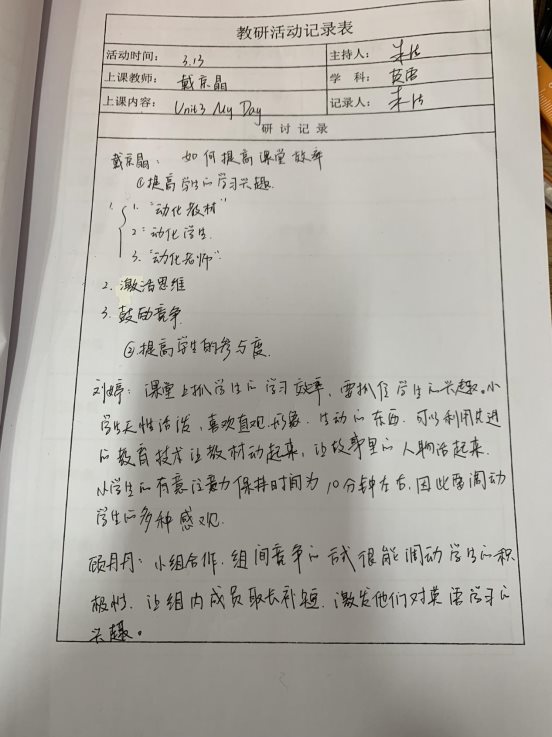 教研活动记录表
活动时间： 3.13 主持人： 朱
上课教师： 戴京晶 学 科： 英语
上课内容： Unit3 My Day 记录人： 朱
研 讨 记 录
戴京晶： 如何提高课堂效率
①提高学生的学习兴趣.
1. 1. "动化教材"
2. 动化学生.
3. "动化老师"
2. 激活思维
3. 鼓励竞争.
②提高学生的参与度.
刘婷：课堂上抓学生的学习效率，要抓住学生的兴趣。小
学生天性活泼，喜欢直观、形象、生动的东西，可以利用先进
的教育技术让教材动起来，让故事里的人物活起来.
小学生的有意注意力保持时间为10分钟左右，因此要调动
学生的多种感观.
顾丹丹：小组合作，组间竞争的方式很能调动学生的积
极性，让组内成员取长补短，激发他们对英语学习的
兴趣。